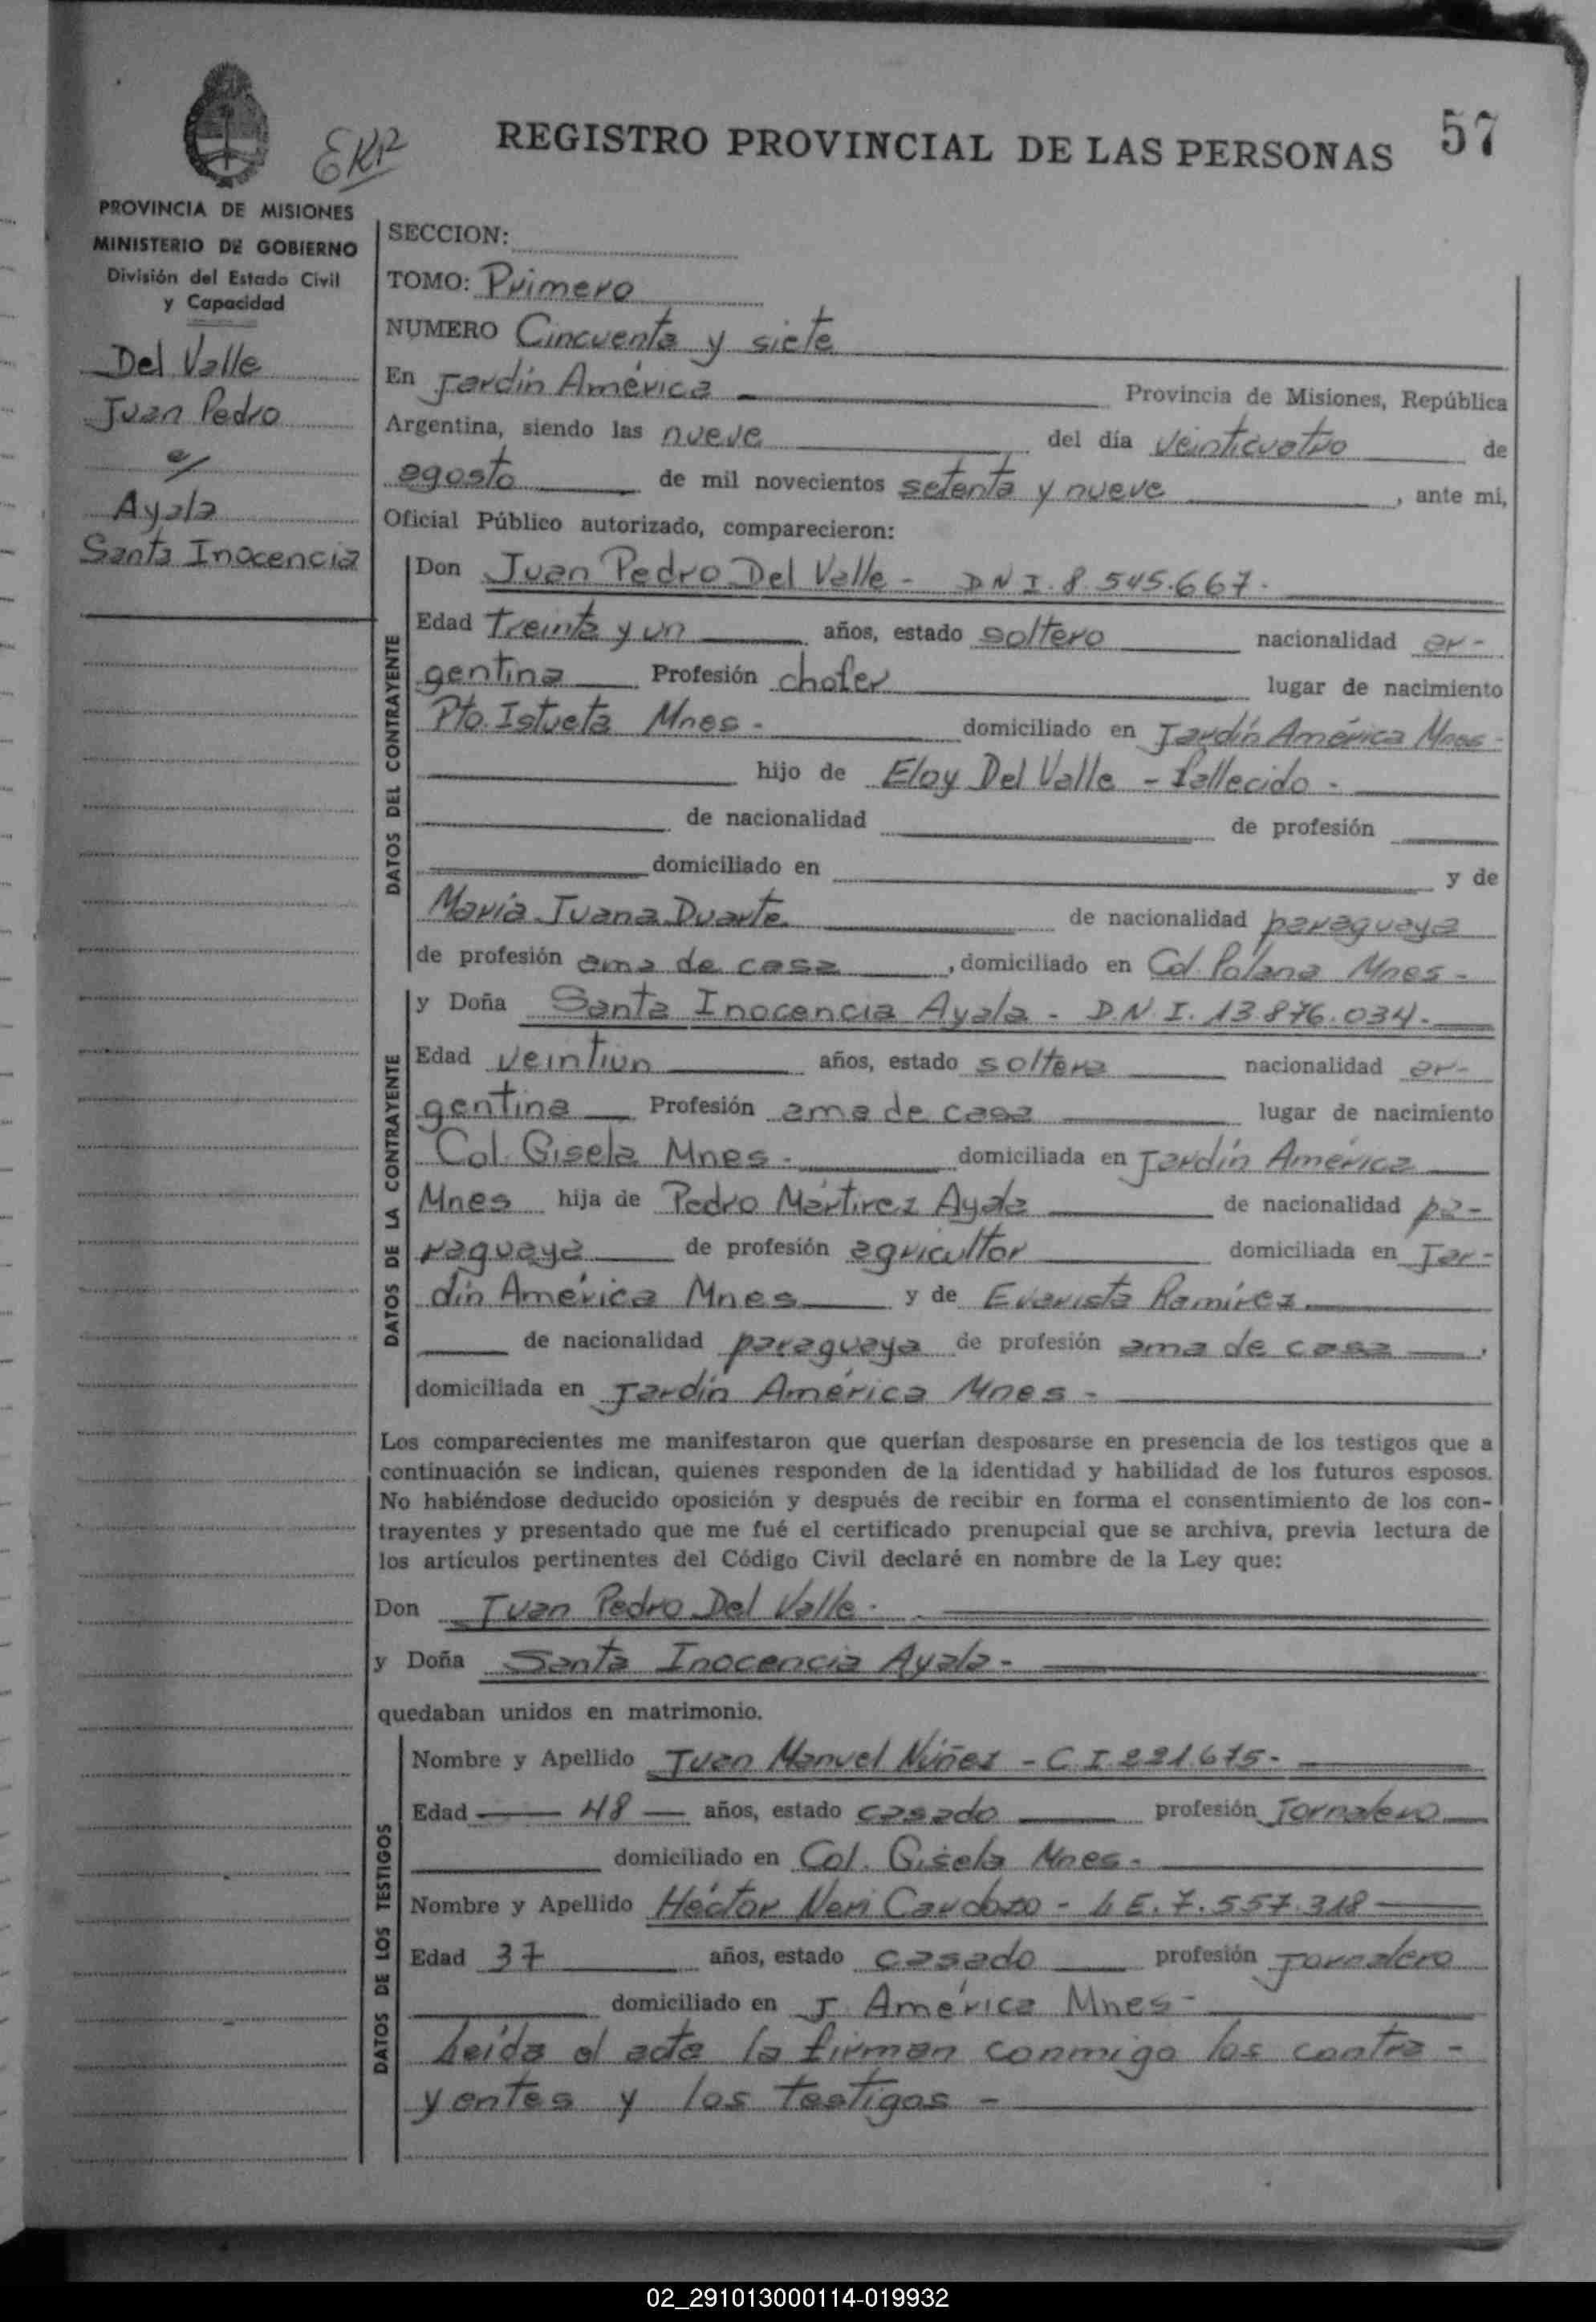 57
EKR
REGISTRO PROVINCIAL DE LAS PERSONAS
PROVINCIA DE MISIONES
MINISTERIO DE GOBIERNO
División del Estado Civil
y Capacidad
Del Valle
Juan Pedro
c/
Ayala
Santa Inocencia
SECCION:
TOMO: Primero
NUMERO Cincuenta y siete
En Jardín América Provincia de Misiones, República
Argentina, siendo las nueve del día veinticuatro de
agosto de mil novecientos setenta y nueve, ante mi,
Oficial Público autorizado, comparecieron:
DATOS DEL CONTRAYENTE
Don Juan Pedro Del Valle - DNI. 8.545.667.
Edad treinta y un años, estado soltero nacionalidad ar-
gentina Profesión chofer lugar de nacimiento
Pto. Istueta Mnes - domiciliado en Jardín América Mnes -
hijo de Eloy Del Valle - fallecido -
de nacionalidad de profesión
domiciliado en y de
María Juana Duarte de nacionalidad paraguaya
de profesión ama de casa, domiciliado en Col. Polana Mnes -
DATOS DE LA CONTRAYENTE
y Doña Santa Inocencia Ayala - D.N.I. 13.876.034.
Edad veintiun años, estado soltera nacionalidad ar-
gentina Profesión ama de casa lugar de nacimiento
Col. Gisela Mnes - domiciliada en Jardín América
Mnes hija de Pedro Mártirez Ayala de nacionalidad pa-
raguaya de profesión agricultor domiciliada en Jar-
dín América Mnes y de Evarista Ramírez
de nacionalidad paraguaya de profesión ama de casa,
domiciliada en Jardín América Mnes -
Los comparecientes me manifestaron que querían desposarse en presencia de los testigos que a
continuación se indican, quienes responden de la identidad y habilidad de los futuros esposos.
No habiéndose deducido oposición y después de recibir en forma el consentimiento de los con-
trayentes y presentado que me fué el certificado prenupcial que se archiva, previa lectura de
los artículos pertinentes del Código Civil declaré en nombre de la Ley que:
Don Juan Pedro Del Valle.
y Doña Santa Inocencia Ayala -
quedaban unidos en matrimonio.
DATOS DE LOS TESTIGOS
Nombre y Apellido Juan Manuel Núñez - C.I. 221.675 -
Edad 48 años, estado casado profesión Jornalero
domiciliado en Col. Gisela Mnes -
Nombre y Apellido Héctor Neri Cardozo - L.E. 7.557.318
Edad 37 años, estado casado profesión Jornalero
domiciliado en J. América Mnes -
Leída el acta la firman conmigo los contra -
yentes y los testigos -
02_291013000114-019932